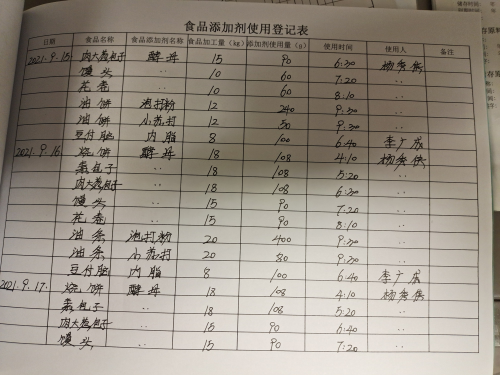 食品添加剂使用登记表
日期 食品名称 食品添加剂名称 食品加工量(kg) 添加剂使用量(g) 使用时间 使用人 备注
2021.9.15 肉大葱包子 酵母 15 90 6:30
馒头 .. 10 60 7:20 ..
花卷 .. 10 60 8:10 ..
油饼 泡打粉 12 240 9:30 ..
油饼 小苏打 12 50 9:30 ..
豆付脑 内脂 8 100 6:40 李广成
2021.9.16 烧饼 酵母 18 108 4:10
素包子 .. 18 108 5:20 ..
肉大葱包子 .. 18 108 6:30 ..
馒头 .. 15 90 7:20 ..
花卷 .. 15 90 8:10 ..
油条 泡打粉 20 400 9:30 ..
油条 小苏打 20 80 9:30 ..
豆付脑 内脂 8 100 6:40 李广成
2021.9.17. 烧饼 酵母 18 108 4:10
素包子 .. 18 108 5:20 ..
肉大葱包子 .. 15 90 6:40 ..
馒头 .. 15 90 7:20 ..